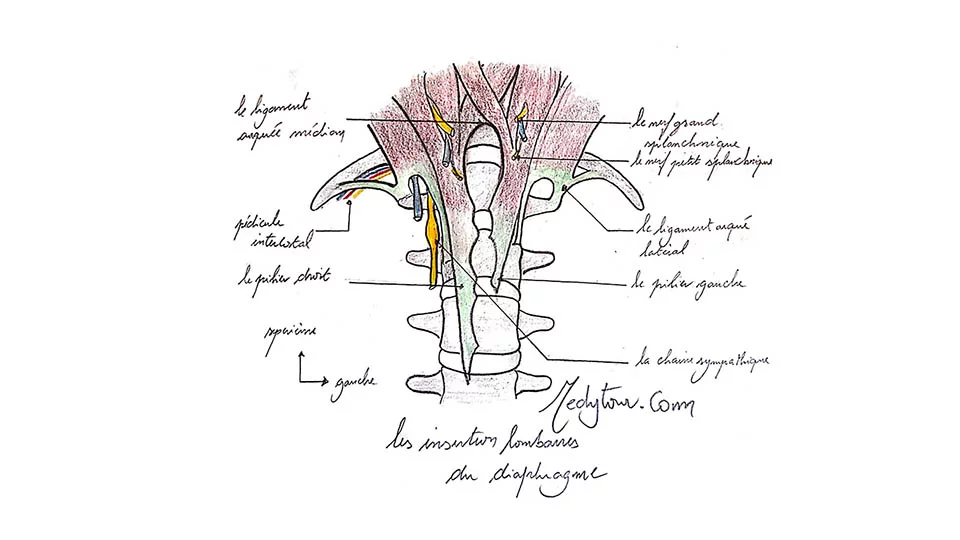 le ligament
arquée médian
le nerf grand
splanchnique
le nerf petit splanchnique
pédicule
intercostal
le ligament arqué
latéral
le pilier droit
le pilier gauche
superieure
gauche
la chaine sympathique
Medytour.Com
les insertion lombaires
du diaphragme